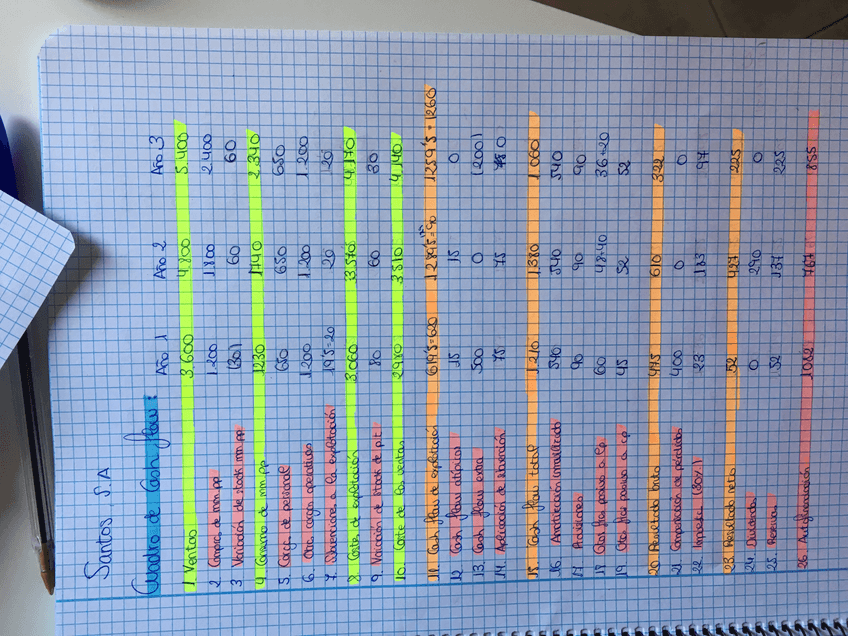 Santos, S.A
Cuadro de Cash flow:
Año 1 Año 2 Año 3
1 Ventas 3.600 4.800 5.400
2 Compras de mm.pp 1.200 1.800 2.400
3 Variación de stock mm.pp (30) 60 60
4. Consumo de mm.pp 1230 1740 2.340
5. Cargas de personal 650 650 650
6. Otras cargas operativas 1.200 1.200 1.200
7. Subvenciones a la explotación 19'5=20 20 20
8 Costes de explotación 3.060 3.570 4.170
9. Variación de stock de p.t. 80 60 30
10. Coste de las ventas 2980 3510 4.140
11. Cash flow de explotación 619'5=620 1289'5=90 1259'5=1260
12 Cash flow atípico 15 15 0
13. Cash flow extra 500 0 (200)
14. Aplicación de subvención 75 75 0
15. Cash flow total 1.210 1.380 1.060
16. Amortización inmovilizado 540 540 540
17 Provisiones 90 90 90
Gtos fros pasivo a l.p 60 48-40 36-20
19. Gtos fros pasivo a c.p 45 52 52
20 Resultado bruto 475 610 322
21. Compensación de pérdidas 400 0 0
22. Impuestos 23 183 97
23. Resultado neto 52 427 225
24. Dividendos 0 290 0
25. Reservas 52 137 225
26. Autofinanciación 1082 767 855